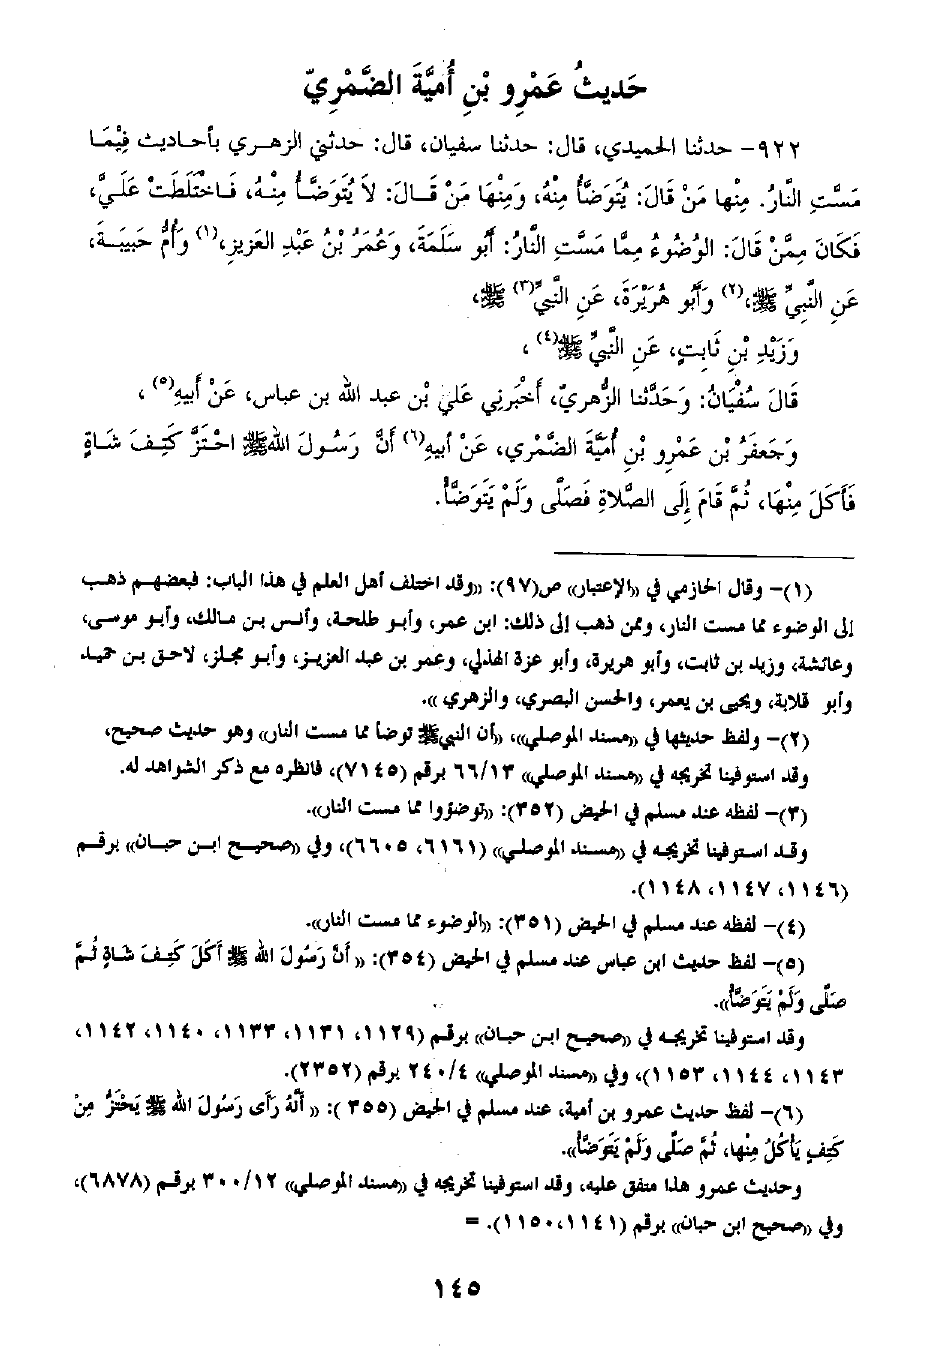 حَديثُ عَمْرِو بْنِ أُمَيَّةَ الضَّمْرِيّ
٩٢٢- حدثنا الحميدي، قال: حدثنا سفيان، قال: حدثني الزهري بأحاديث فِيْمَا
مَسَّتِ النَّارُ. مِنْها مَنْ قَالَ: يُتَوَضَّأُ مِنْهُ، وَمِنْهَا مَنْ قَالَ: لاَ يُتَوَضَّأُ مِنْهُ، فَاخْتَلَطَتْ عَلَيَّ،
فَكَانَ مِمَّنْ قَالَ: الوُضُوءُ مِمَّا مَسَّتِ النَّارُ: أَبُو سَلَمَةَ، وَعُمَرُ بْنُ عَبْدِ العَزِيزِ،(١) وَأُمُّ حَبِيبَةَ،
عَنِ النَّبِيِّ ﷺ،(٢) وَأَبُو هُرَيْرَةَ، عَنِ النَّبِيِّ(٣) ﷺ،
وَزَيْدِ بْنِ ثَابِتٍ، عَنِ النَّبِيِّ ﷺ(٤) ،
قَالَ سُفْيَانُ: وَحَدَّثَنا الزُّهريّ، أَخْبَرَنِي عَلي بْن عبد الله بن عباس، عَنْ أَبِيهِ(٥) ،
وَجَعفَرُ بْن عَمْرِو بْنِ أُمَيَّةَ الضَّمْرِي، عَنْ أبيهِ(٦) أَنَّ رَسُولَ اللهِ ﷺ احْتَزَّ كَتِفَ شَاةٍ
فَأَكَلَ مِنْهَا، ثُمَّ قَامَ إِلَى الصَّلاةِ فَصَلَّى وَلَمْ يَتَوَضَّأْ.
(١)- وقال الحازمي في «الإعتبار» ص(٩٧): «وقد اختلف أهل العلم في هذا الباب: فبعضهم ذهب
إلى الوضوء مما مست النار، وممن ذهب إلى ذلك: ابن عمر، وأبو طلحة، وأنس بن مالك، وأبو موسى،
وعائشة، وزيد بن ثابت، وأبو هريرة، وأبو عزة الهذلي، وعمر بن عبد العزيز، وأبو مجلز، لاحق بن حميد
وأبو قلابة، ويحيى بن يعمر، والحسن البصري، والزهري ».
(٢)- ولفظ حديثها في «مسند الموصلي»، «أن النبي ﷺ توضأ مما مست النار» وهو حديث صحيح،
وقد استوفينا تخريجه في «مسند الموصلي» ٦٦/١٣ برقم (٧١٤٥)، فانظره مع ذكر الشواهد له.
(٣)- لفظه عند مسلم في الحيض (٣٥٢): «توضؤوا مما مست النار».
وقد استوفينا تخريجه في «مسند الموصلي» (٦١٦١، ٦٦٠٥)، وفي «صحيح ابن حبان» برقم
(١١٤٦، ١١٤٧، ١١٤٨).
(٤)- لفظه عند مسلم في الحيض (٣٥١): «الوضوء مما مست النار».
(٥)- لفظ حديث ابن عباس عند مسلم في الحيض (٣٥٤): « أَنَّ رَسُولَ الله ﷺ أَكَلَ كَتِفَ شَاةٍ ثُمَّ
صَلَّى وَلَمْ يَتَوَضَّأْ».
وقد استوفينا تخريجه في «صحيح ابن حبان» برقم (١١٢٩، ١١٣١، ١١٣٣، ١١٤٠، ١١٤٢،
١١٤٣، ١١٤٤، ١١٥٣)، وفي «مسند الموصلي» ٢٤٠/٤ برقم (٢٣٥٢).
(٦)- لفظ حديث عمرو بن أمية، عند مسلم في الحيض (٣٥٥ ): « أَنَّهُ رَأَى رَسُولَ الله ﷺ يَحْتَزُّ مِنْ
كَتِفٍ يَأْكُلُ مِنْهَا، ثُمَّ صَلَّى وَلَمْ يَتَوَضَّأْ».
وحديث عمرو هذا متفق عليه، وقد استوفينا تخريجه في «مسند الموصلي» ٣٠٠/١٢ برقم (٦٨٧٨)،
وفي «صحيح ابن حبان» برقم (١١٤١، ١١٥٠). =
١٤٥